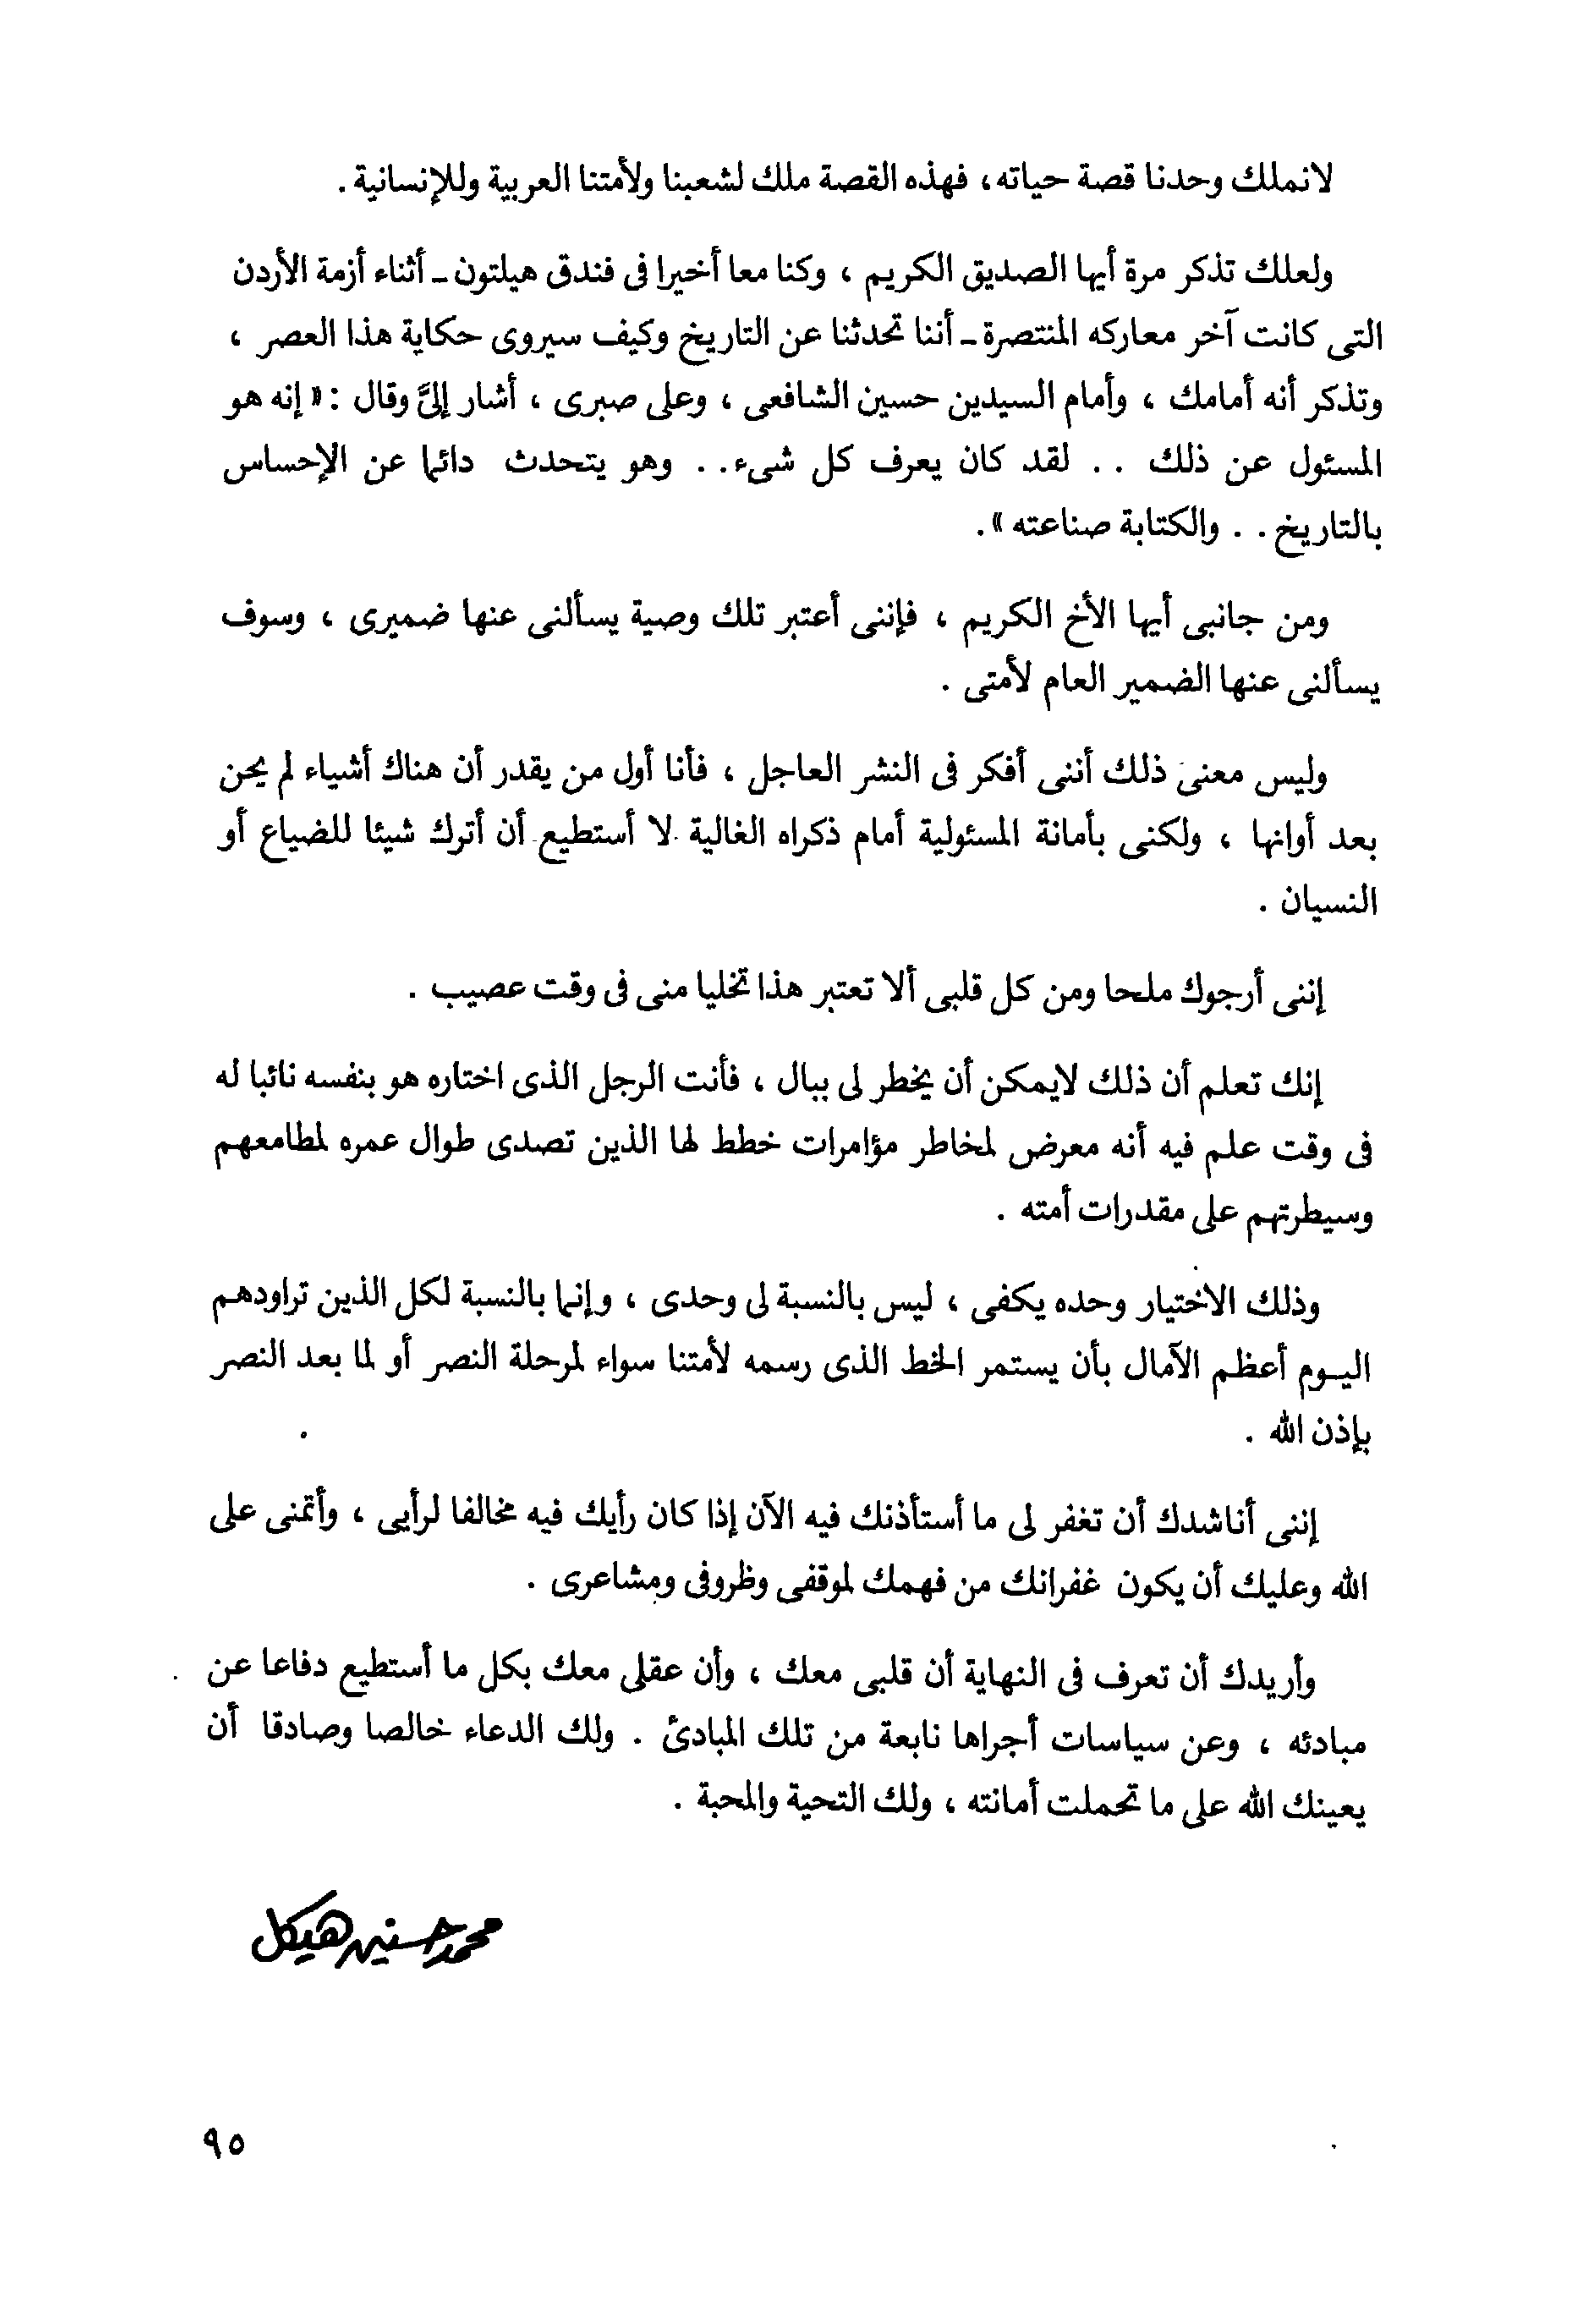 لانملك وحدنا قصة حياته، فهذه القصة ملك لشعبنا ولأمتنا العربية وللإنسانية .
ولعلك تذكر مرة أيها الصديق الكريم ، وكنا معا أخيرا فى فندق هيلتون ـ أثناء أزمة الأردن
التى كانت آخر معاركه المنتصرة ـ أننا تحدثنا عن التاريخ وكيف سيروى حكاية هذا العصر ،
وتذكر أنه أمامك ، وأمام السيدين حسين الشافعى ، وعلى صبرى ، أشار إلىَّ وقال : « إنه هو
المسئول عن ذلك . . لقد كان يعرف كل شىء . . وهو يتحدث دائما عن الإحساس
بالتاريخ . . والكتابة صناعته » .
ومن جانبى أيها الأخ الكريم ، فإننى أعتبر تلك وصية يسألنى عنها ضميرى ، وسوف
يسألنى عنها الضمير العام لأمتى .
وليس معنى ذلك أننى أفكر فى النشر العاجل ، فأنا أول من يقدر أن هناك أشياء لم يحن
بعد أوانها ، ولكنى بأمانة المسئولية أمام ذكراه الغالية لا أستطيع أن أترك شيئا للضياع أو
النسيان .
إننى أرجوك ملحا ومن كل قلبى ألا تعتبر هذا تخليا منى فى وقت عصيب .
إنك تعلم أن ذلك لايمكن أن يخطر لى ببال ، فأنت الرجل الذى اختاره هو بنفسه نائبا له
فى وقت علم فيه أنه معرض لمخاطر مؤامرات خطط لها الذين تصدى طوال عمره لمطامعهم
وسيطرتهم على مقدرات أمته .
وذلك الاختيار وحده يكفى ، ليس بالنسبة لى وحدى ، وإنما بالنسبة لكل الذين تراودهم
اليـوم أعظم الآمال بأن يستمر الخط الذى رسمه لأمتنا سواء لمرحلة النصر أو لما بعد النصر
بإذن الله .
إننى أناشدك أن تغفر لى ما أستأذنك فيه الآن إذا كان رأيك فيه مخالفا لرأيى ، وأتمنى على
الله وعليك أن يكون غفرانك من فهمك لموقفى وظروفى ومشاعرى .
وأريدك أن تعرف فى النهاية أن قلبى معك ، وأن عقلى معك بكل ما أستطيع دفاعا عن
مبادئه ، وعن سياسات أجراها نابعة من تلك المبادئ . ولك الدعاء خالصا وصادقا أن
يعينك الله على ما تحملت أمانته ، ولك التحية والمحبة .
محمد حسنين هيكل
٩٥